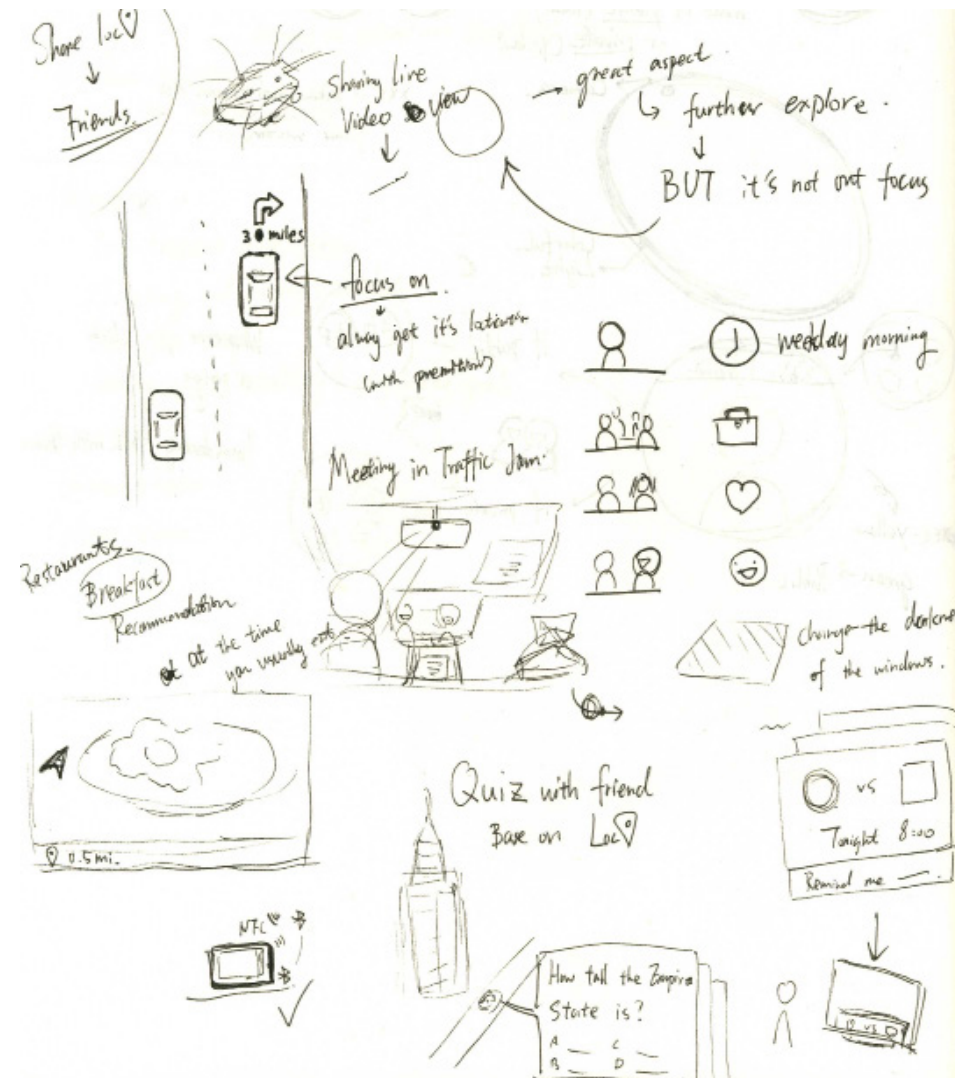 Share Loc
Friends.
sharing live
Video view
great aspect.
further explore.
BUT it's not out focus
3 miles
focus on.
alway get it's
with
weekday morning
Meeting in Traffic Jam.
Restaurants.
Breakfast
Recommendation
at the time
you usually eat
change the
of the windows.
0.5 mi.
Quiz with friend
Base on Loc
vs
Tonight 8:00
Remind me
NFC
How tall the Empire
State is?
A C
B D
vs